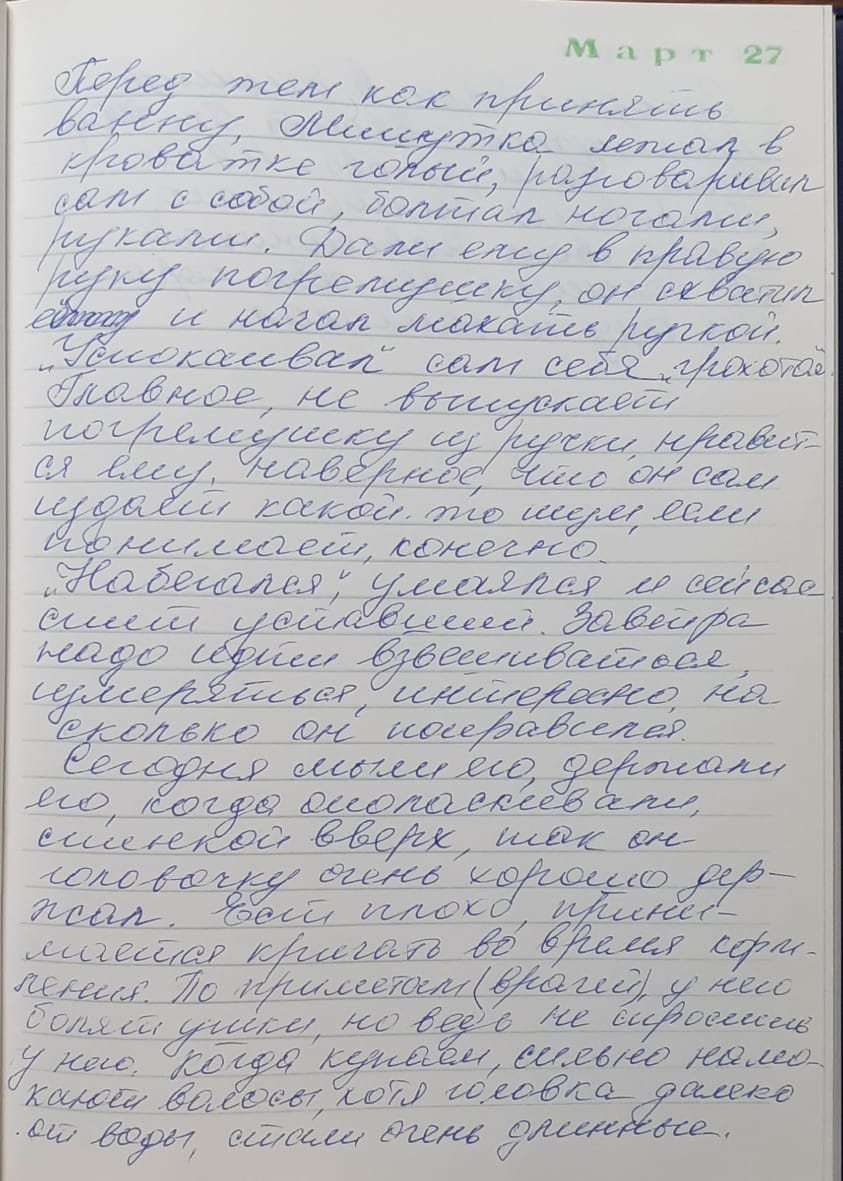 Март 27
Перед тем как принять
ванну, Мишутка лежал в
кроватке голый, разговаривал
сам с собой, болтал ногами,
руками. Дали ему в правую
руку погремушку, он схватил
и начал махать ручкой.
„Успокаивал" сам себя „грохотом".
Главное, не выпускает
погремушку из ручки, нравит-
ся ему, наверное, что он сам
издаёт какой-то шум, если
понимает, конечно.
„Набегался", умаялся и сейчас
спит уставший. Завтра
надо идти взвешиваться,
измеряться, интересно, на
сколько он поправился.
Сегодня мыли его, держали
его, когда ополаскивали,
спинкой вверх, так он
головочку очень хорошо дер-
жал. Ест плохо, прини-
мается кричать во время корм-
ления. По приметам (врачей), у него
болят ушки, но ведь не спросишь
у него. Когда купаем, сильно намо-
кают волосы, хотя головка далеко
от воды, стали очень длинные.